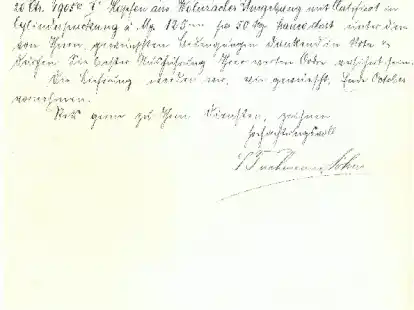 20 Ctr. 1905er Hopfen aus Wolnzacher Umgebung mit Certificat in
Cylinderpackung à Mk 125.– für 50 Kg unter den
von Ihnen gewünschten Bedingungen dankend in Nota &
dürfen Sie bester Ausführung Ihrer werten Ordre versichert sein.
Die Lieferung werden wir, wie gewünscht, Ende October
vornehmen.
Stets gerne zu Ihren Diensten, zeichnen
hochachtungsvoll
Söhne